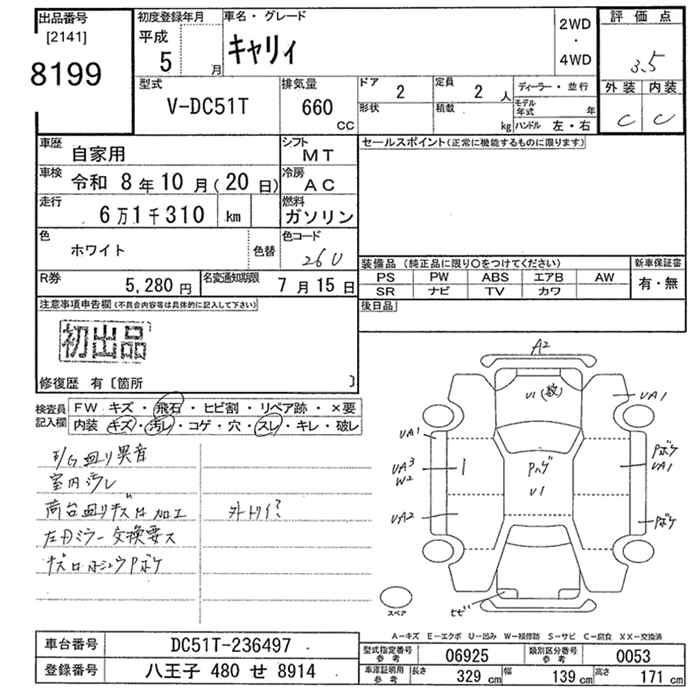 出品番号
[2141]
8199
初度登録年月
平成
5 月
車名・グレード
キャリィ
2WD
・
4WD
評価点
3.5
外装 内装
C C
型式
V-DC51T
排気量
660
CC
ドア
2
定員
2 人
形状
積載
kg
ディーラー・並行
モデル
年式 年
ハンドル 左・右
車歴
自家用
シフト
MT
車検
令和 8年 10月(20日)
冷房
AC
走行
6万1千310 km
燃料
ガソリン
色
ホワイト
色替
色コード
26U
R券
5,280円
名変通知期限
7月15日
セールスポイント(正常に機能するものに限ります)
装備品 (純正品に限り〇をつけてください)
新車保証書
PS PW ABS エアB AW
SR ナビ TV カワ
有・無
後日品
注意事項申告欄(不具合内容等は具体的に記入して下さい)
初出品
修復歴 有〔箇所 〕
検査員
記入欄
FW キズ・飛石・ヒビ割・リペア跡・×要
内装・キズ・汚レ・コゲ・穴・スレ・キレ・破レ
室内汚レ
荷台廻りキズ凹加工
左Dミラー交換要ス
A2
U1
UA1
UA1
UA3
W2
UA2
Pボケ
U1
Pボケ
UA1
Pボケ
ヒビ
スペア
A-キズ E-エクボ U-凹み W-補修跡 S-サビ C-腐食 XX-交換済
車台番号
DC51T-236497
登録番号
八王子 480 せ 8914
型式指定番号
参考
06925
類別区分番号
参考
0053
車庫証明用
参考
長さ
329 cm
幅
139 cm
高さ
171 cm